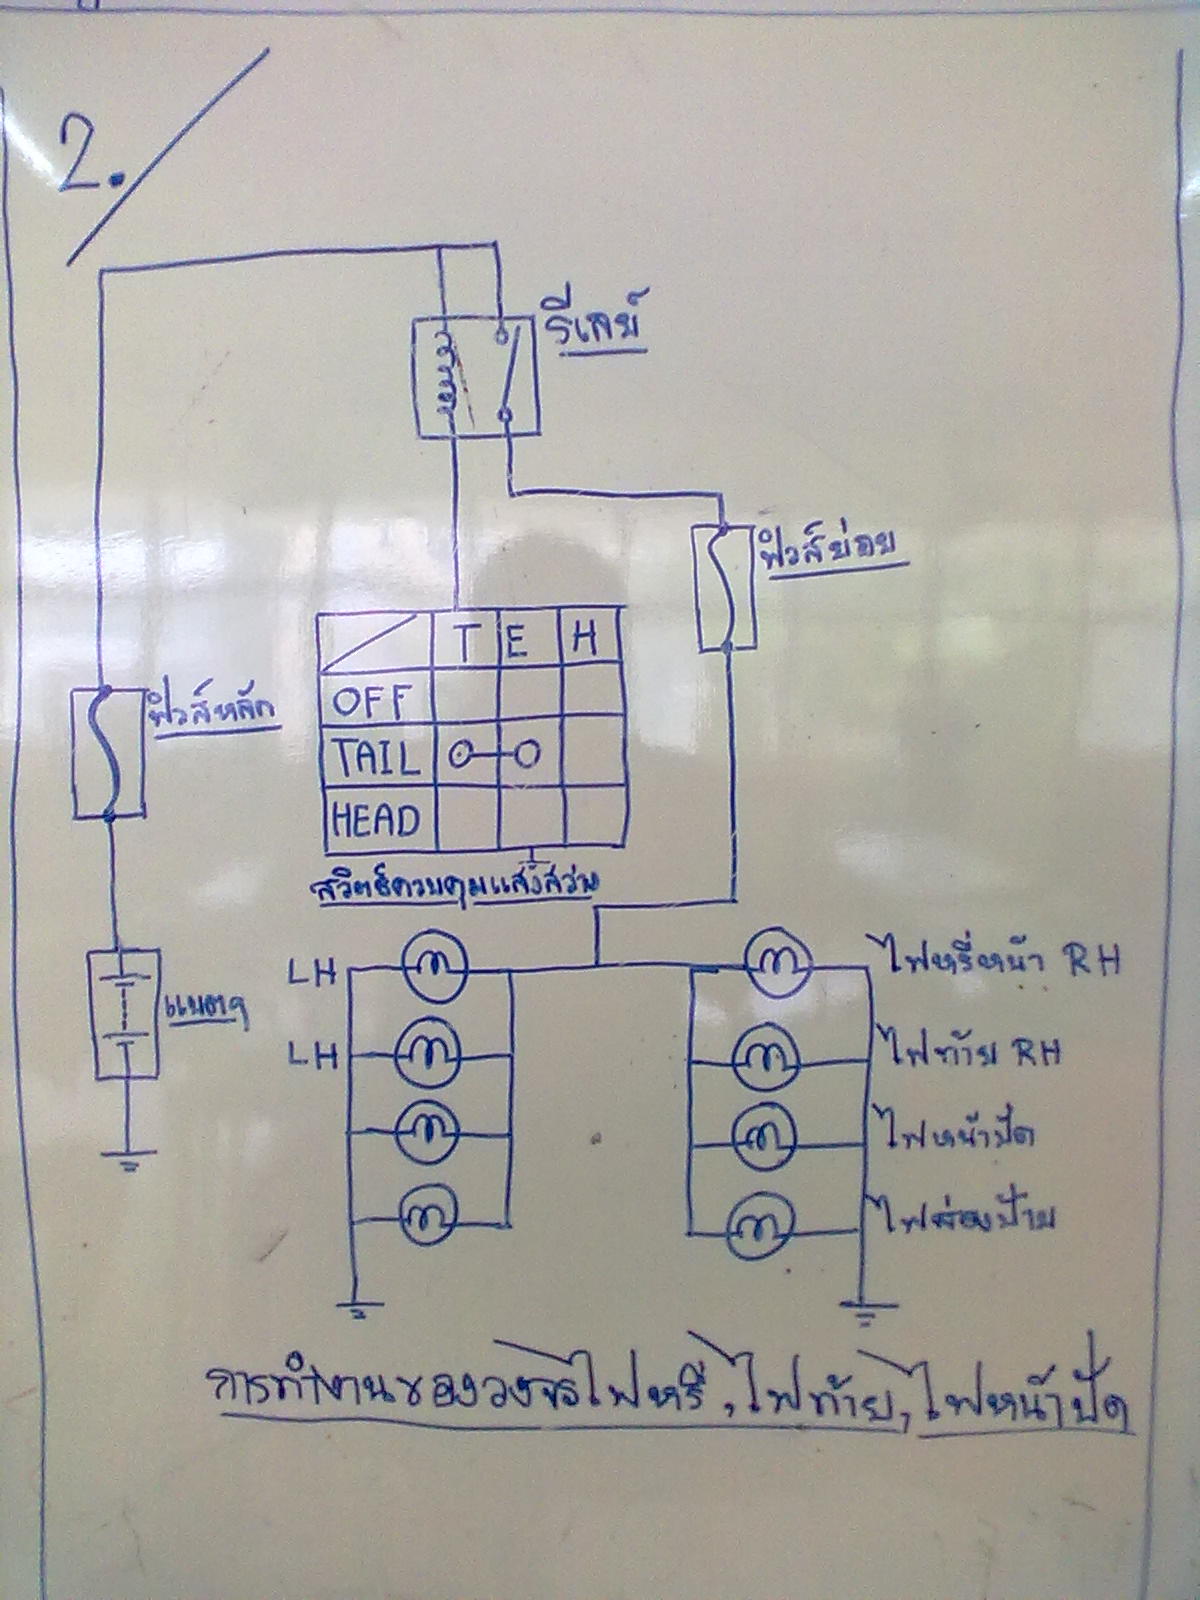 2.
รีเลย์
ฟิวส์ย่อย
T E H
OFF
TAIL
HEAD
ฟิวส์หลัก
สวิตช์ควบคุมแสงสว่าง
แบตฯ
LH
ไฟหรี่หน้า RH
LH
ไฟท้าย RH
ไฟหน้าปัด
ไฟส่องป้าย
การทำงานของวงจรไฟหรี่, ไฟท้าย, ไฟหน้าปัด